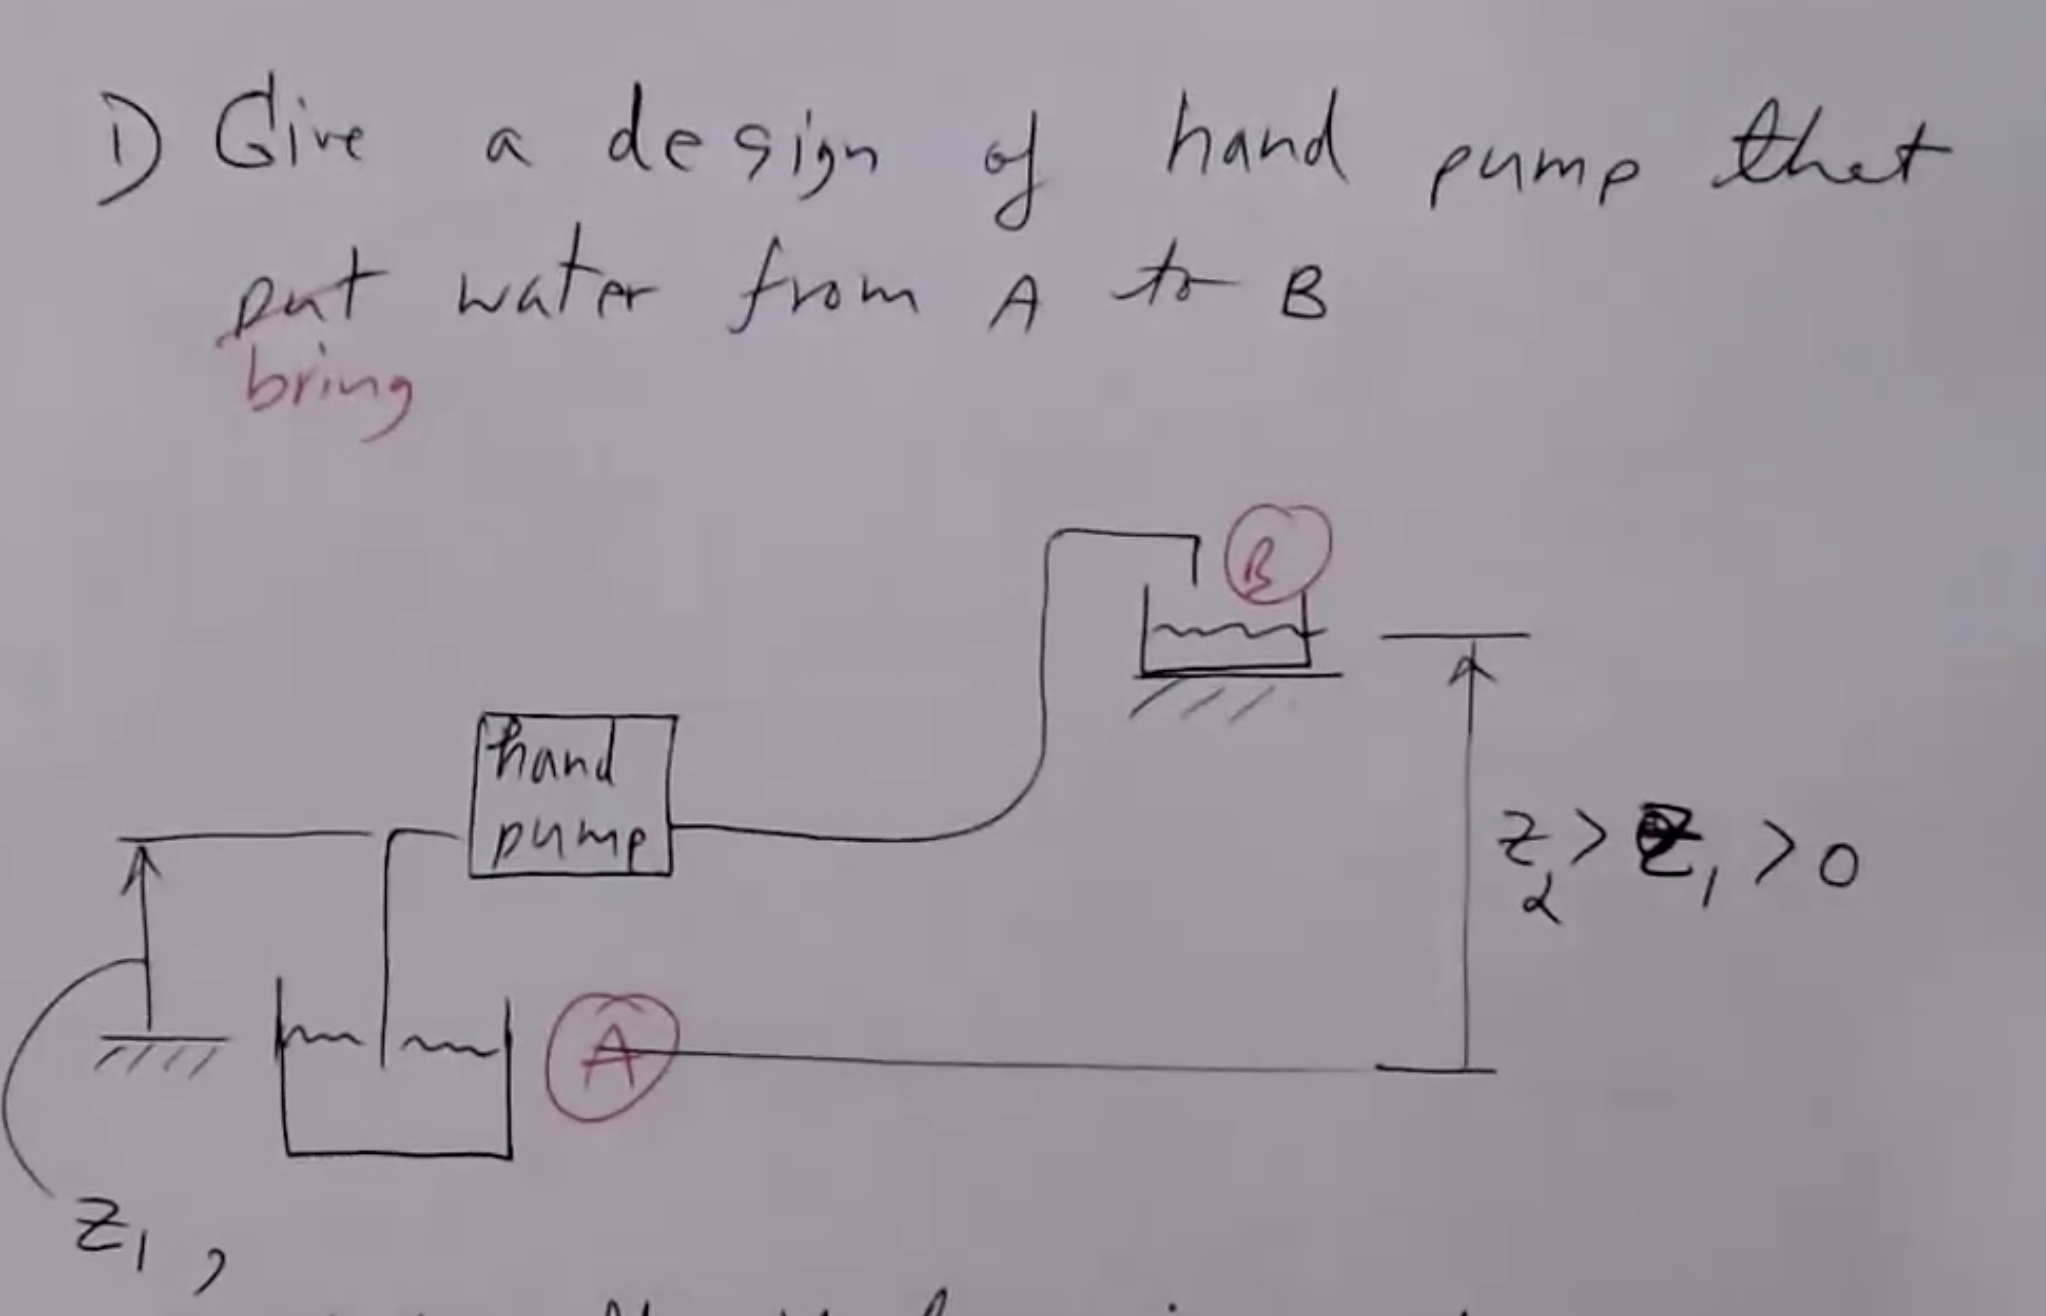 1) Give a design of hand pump that
put water from A to B
bring
B
hand
pump
z₂ > z₁ > 0
A
z₁,